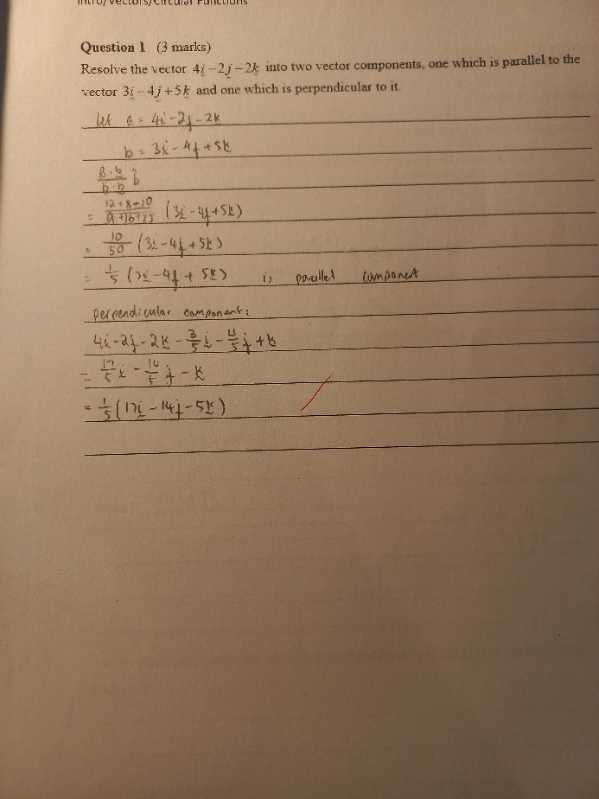 Intro/Vectors/Circular Functions
Question 1 (3 marks)
Resolve the vector 4i - 2j - 2k into two vector components, one which is parallel to the
vector 3i - 4j + 5k and one which is perpendicular to it.
let a = 4i - 2j - 2k
b = 3i - 4j + 5k
a·b/b·b b
= 12+8-10/9+16+25 (3i - 4j + 5k)
= 10/50 (3i - 4j + 5k)
= 1/5 (3i - 4j + 5k) is parallel component
perpendicular component:
4i - 2j - 2k - 3/5 i - 4/5 j + k
= 17/5 i - 14/5 j - k
= 1/5 (17i - 14j - 5k)